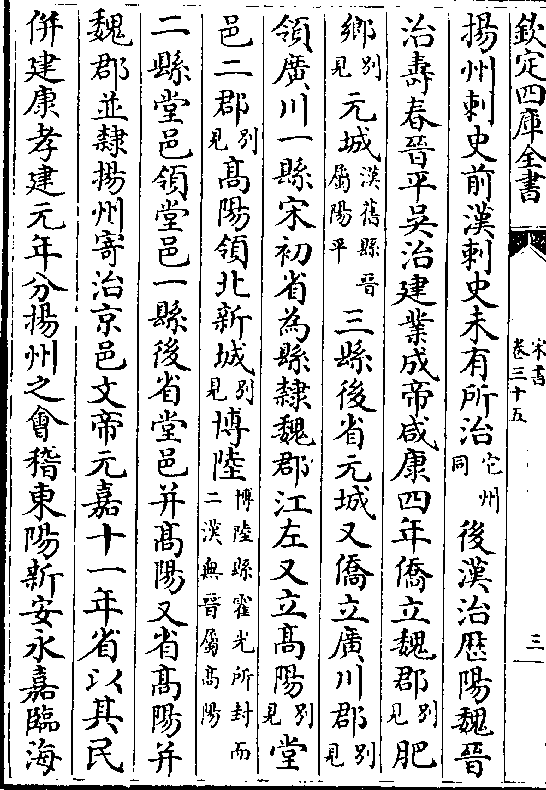 欽定四庫全書
宋書
卷三十五
三
揚州刺史前漢刺史未有所治它州同後漢治歷陽魏晉
治壽春晉平吳治建業成帝咸康四年僑立魏郡別見肥
鄉別見元城漢舊縣晉屬陽平三縣後省元城又僑立廣川郡別見
領廣川一縣宋初省為縣隸魏郡江左又立髙陽別見堂
邑二郡別見髙陽領北新城別見博陸博陸縣霍光所封而二漢無晉屬髙陽
二縣堂邑領堂邑一縣後省堂邑并髙陽又省髙陽并
魏郡並隸揚州寄治京邑文帝元嘉十一年省以其民
併建康孝建元年分揚州之會稽東陽新安永嘉臨海